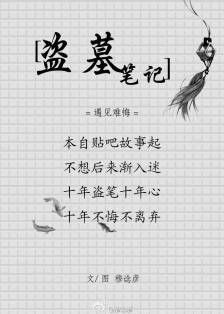 [盗墓笔记]
=遇见难悔=
本自贴吧故事起
不想后来渐入迷
十年盗笔十年心
十年不悔不离弃
文/图 穆谂彦